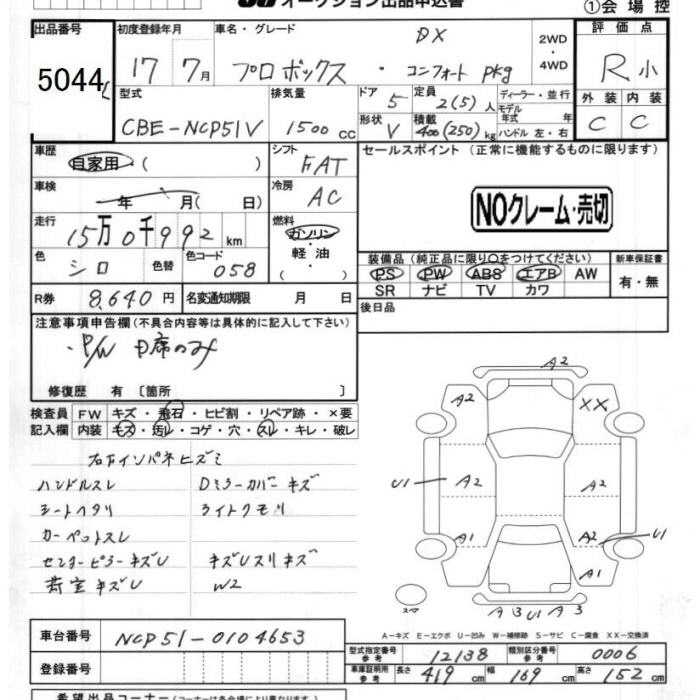 オークション出品申込書 ①会場控
出品番号 初度登録年月 車名・グレード DX 2WD・4WD 評価点
5044 17 7月 プロボックス ・ コンフォート pkg R小
型式 排気量 ドア 5 定員 2(5)人 ディーラー・並行 外装 内装
CBE-NCP51V 1500cc 形状 V 積載 400(250)kg モデル年式 年 ハンドル 左・右 C C
車歴 自家用・( ) シフト FAT セールスポイント (正常に機能するものに限ります)
車検 年 月( 日) 冷房 AC NOクレーム・売切
走行 15万0千992km 燃料 ガソリン・軽油・( )
色 シロ 色替 色コード 058 装備品 (純正品に限り○をつけてください) 新車保証書
PS PW ABS エアB AW 有・無
SR ナビ TV カワ
R券 8,640円 名変通知期限 月 日 後日品
注意事項申告欄(不具合内容等は具体的に記入して下さい)
・P/W D席のみ
修復歴 有 〔箇所 〕
検査員 FW キズ・飛石・ヒビ割・リペア跡・×要
記入欄 内装 キズ・汚レ・コゲ・穴・スレ・キレ・破レ
右下インパネヒズミ
ハンドルスレ Dミラーカバーキズ
シートヘタリ ライトクモリ
カーペットスレ
センターピラーキズU キズUスリキズ
荷室キズU W2
A2
A2 XX
U1 A2 A2
A2 U1
A1 A1
スペア A3 U1 A3
A-キズ E-エクボ U-凹み W-補修跡 S-サビ C-腐食 XX-交換済
車台番号 NCP51-0104653
型式指定番号 参考 12138 類別区分番号 参考 0006
登録番号 車庫証明用 参考 長さ 419cm 幅 169cm 高さ 152cm
希望出品コーナー